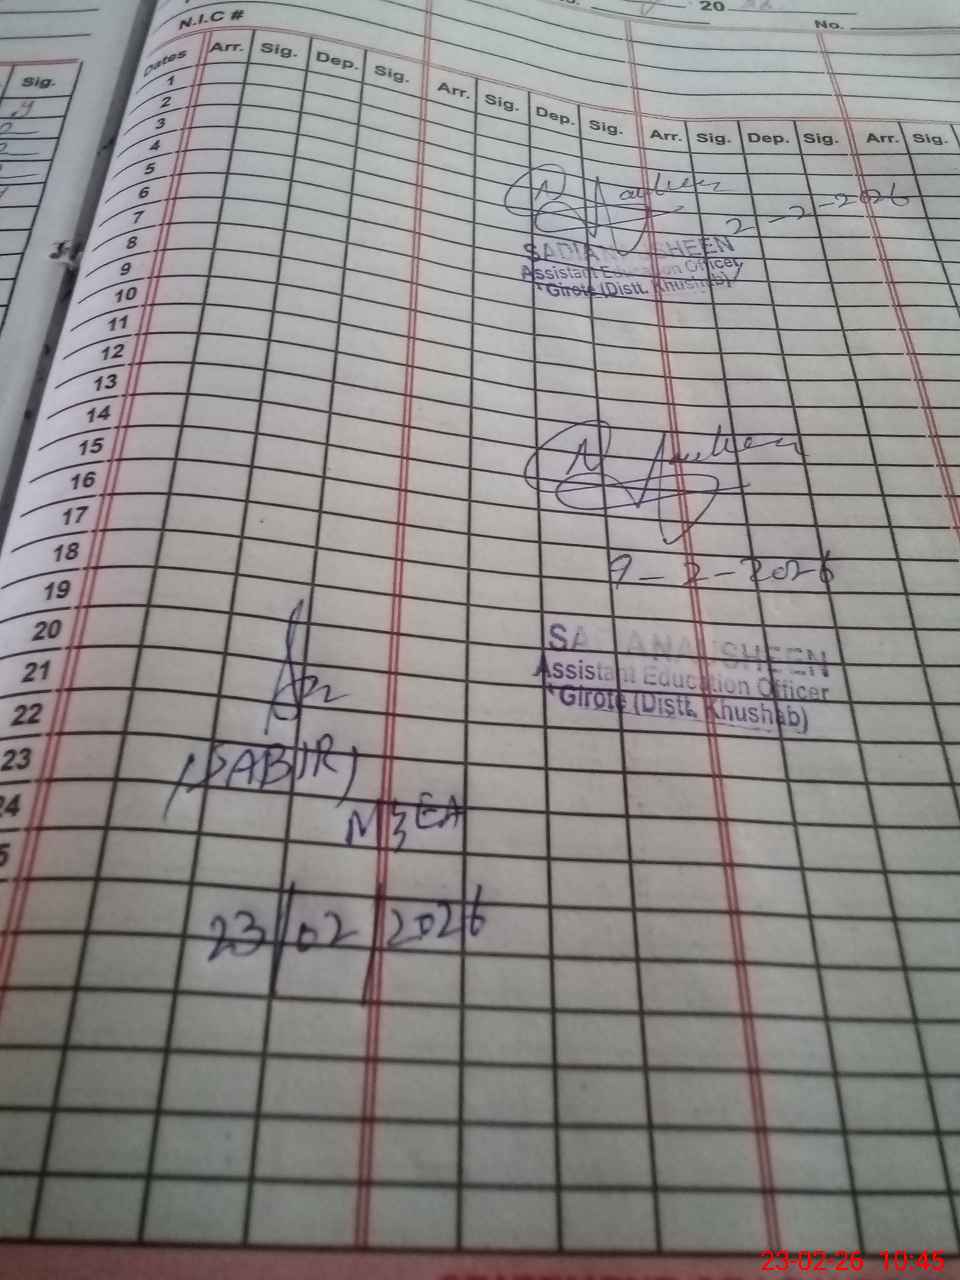 N.I.C #
20
No.
Sig.
Dates Arr. Sig. Dep. Sig. Arr. Sig. Dep. Sig. Arr. Sig. Dep. Sig. Arr. Sig.
1
2
3
4
5
6
7
8
9
10
11
12
13
14
15
16
17
18
19
20
21
22
23
24
5
2-2-2026
SADIA NAUSHEEN
Assistant Education Officer
Girote (Distt. Khushab)
9-2-2026
SADIA NAUSHEEN
Assistant Education Officer
Girote (Distt. Khushab)
(SABIR)
MEA
23/02/2026
23-02-26 10:45